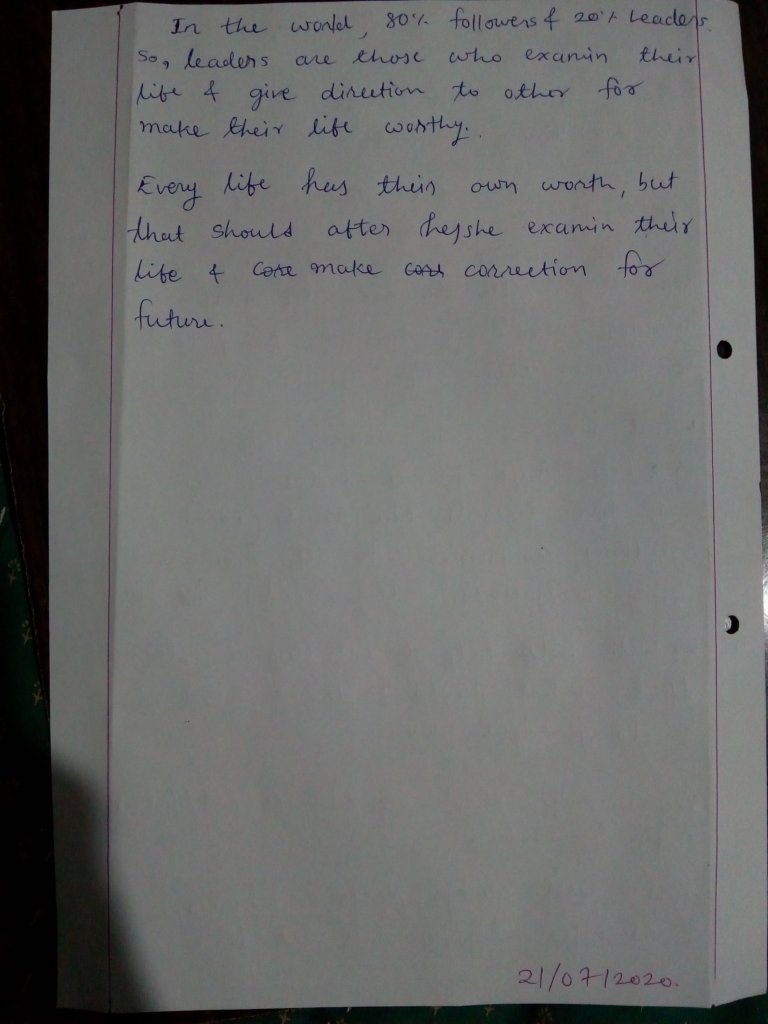 In the world, 80% followers & 20% Leaders.
So, leaders are those who examin their
life & give direction to other for
make their life worthy.
Every life has their own worth, but
that should after he/she examin their
life & Core make corr correction for
future.
21/07/2020.